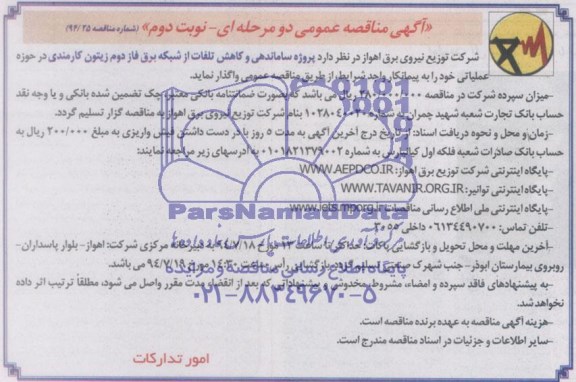 «آگهی مناقصه عمومی دو مرحله ای- نوبت دوم» (شماره مناقصه ۹۴/۲۵)
شرکت توزیع نیروی برق اهواز در نظر دارد پروژه ساماندهی و کاهش تلفات از شبکه برق فاز دوم زیتون کارمندی در حوزه
عملیاتی خود را به پیمانکار واجد شرایط از طریق مناقصه عمومی واگذار نماید.
-میزان سپرده شرکت در مناقصه ریال می باشد که بصورت ضمانتنامه بانکی معتبر، چک تضمین شده بانکی و یا وجه نقد
حساب بانک تجارت شعبه شهید چمران به شماره بنام شرکت توزیع نیروی برق اهواز به مناقصه گزار تسلیم گردد.
-زمان و محل و نحوه دریافت اسناد: از تاریخ درج آخرین آگهی به مدت ۵ روز با در دست داشتن فیش واریزی به مبلغ ۲۰۰/۰۰۰ ریال به
حساب بانک صادرات شعبه فلکه اول کیانپارس به شماره ۰۱۰۱۸۲۱۳۷۹۰۰۲ به آدرسهای زیر مراجعه نمایند:
-پایگاه اینترنتی شرکت توزیع برق اهواز: WWW.AEPDCO.IR
-پایگاه اینترنتی توانیر: WWW.TAVANIR.ORG.IR
-پایگاه اینترنتی ملی اطلاع رسانی مناقصات www.iets.mporg.ir
-تلفن تماس: ۰۶۱۳۴۴۹۰۷۰۰ داخلی ۲۰۵۵
-آخرین مهلت و محل تحویل و بازگشایی پاکات: حداکثر تا ساعت ۱۳ مورخ ۹۴/۷/۱۸ به دبیرخانه مرکزی شرکت: اهواز- بلوار پاسداران-
روبروی بیمارستان ابوذر- جنب شهرک صنعتی تسلیم گردد. بازگشایی رأس ساعت ۱۴:۳۰ مورخ ۹۴/۷/۱۹ می باشد.
-به پیشنهادهای فاقد سپرده و امضاء، مشروط، مخدوش و پیشنهاداتی که بعد از انقضاء مدت مقرر واصل می شود، مطلقاً ترتیب اثر داده
نخواهد شد.
-هزینه آگهی مناقصه به عهده برنده مناقصه است.
-سایر اطلاعات و جزئیات در اسناد مناقصه مندرج است.
امور تدارکات
ParsNamadData
پایگاه اطلاع رسانی مناقصه و مزایده
۰۲۱-۸۸۳۴۹۶۷۰-۵